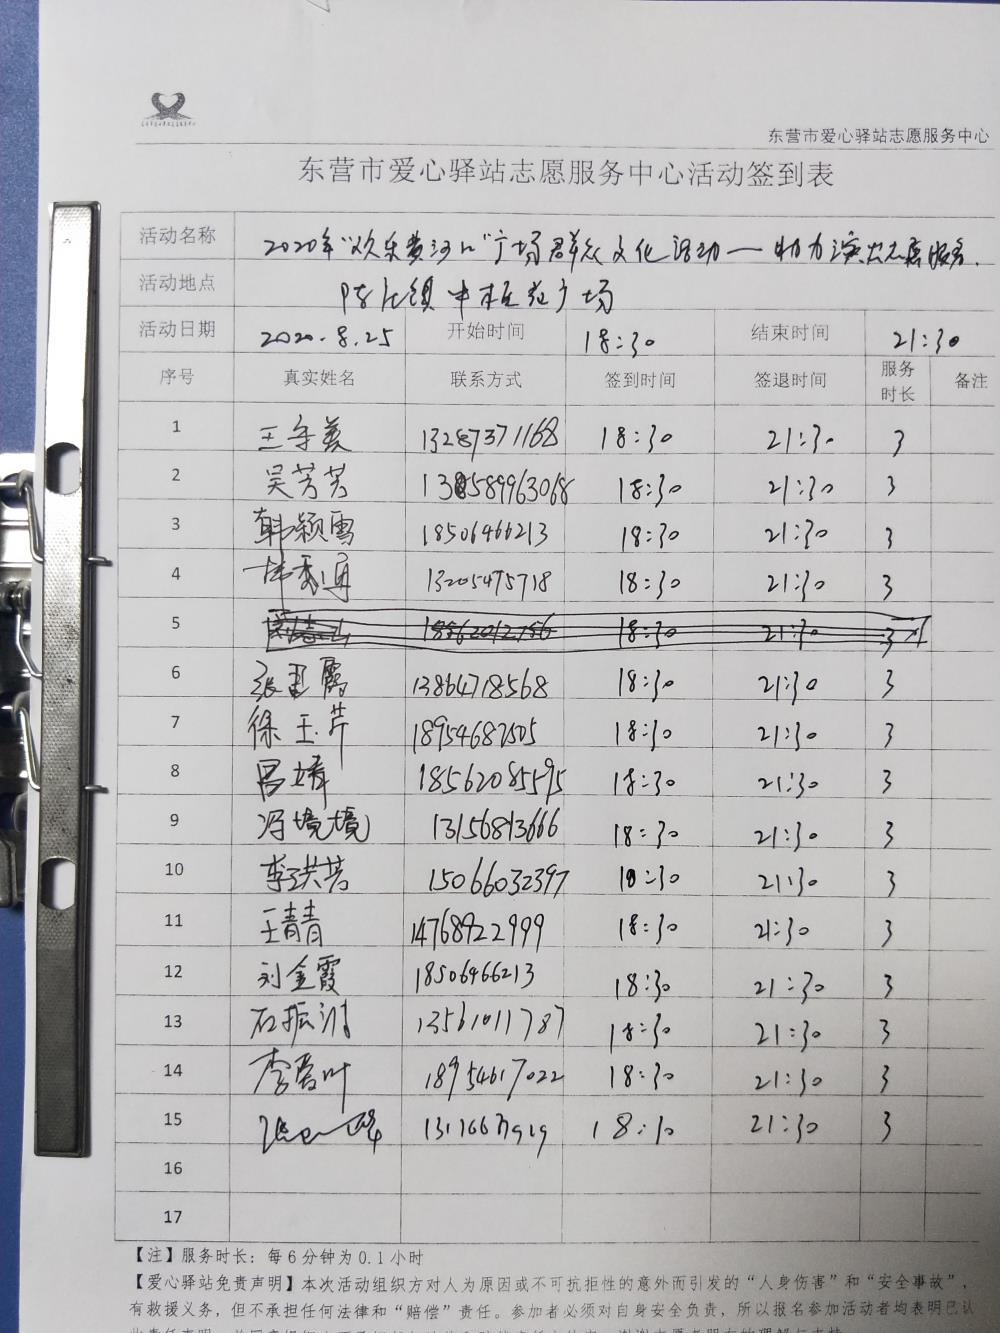 东营市爱心驿站志愿服务中心
东营市爱心驿站志愿服务中心活动签到表
活动名称 2020年“欢乐黄河口”广场群众文化活动—助力演出志愿服务.
活动地点 陈庄镇中 广场
活动日期 2020.8.25 开始时间 18:30 结束时间 21:30
序号 真实姓名 联系方式 签到时间 签退时间 服务时长 备注
1 王守美 13287371168 18:30 21:30 3
2 吴芳芳 18:30 21:30 3
3 韩颖雪 18506466213 18:30 21:30 3
4 13205475718 18:30 21:30 3
5 18562012756 18:30 21:30 3
6 13864718568 18:30 21:30 3
7 徐玉芹 18954687505 18:30 21:30 3
8 吕婧 18562085595 18:30 21:30 3
9 冯境境 13156813666 18:30 21:30 3
10 李洪芳 15066032397 18:30 21:30 3
11 王青青 14768922999 18:30 21:30 3
12 刘金霞 18506466213 18:30 21:30 3
13 石振洲 13561011787 18:30 21:30 3
14 李爱叶 18954617022 18:30 21:30 3
15 18:30 21:30 3
16
17
【注】服务时长：每6分钟为0.1小时
【爱心驿站免责声明】本次活动组织方对人为原因或不可抗拒性的意外而引发的“人身伤害”和“安全事故”，
有救援义务，但不承担任何法律和“赔偿”责任。参加者必须对自身安全负责，所以报名参加活动者均表明已认